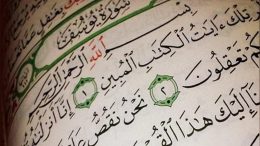 سُورَةُ يُوسُفَ
بِسْمِ اللَّهِ الرَّحْمَٰنِ الرَّحِيمِ
تِلْكَ ءَايَٰتُ الْكِتَٰبِ الْمُبِينِ ١ إِنَّا أَنزَلْنَٰ
كُمْ تَعْقِلُونَ ٢ نَحْنُ نَقُصُّ عَلَ
نَا إِلَيْكَ هَٰذَا الْقُرْ